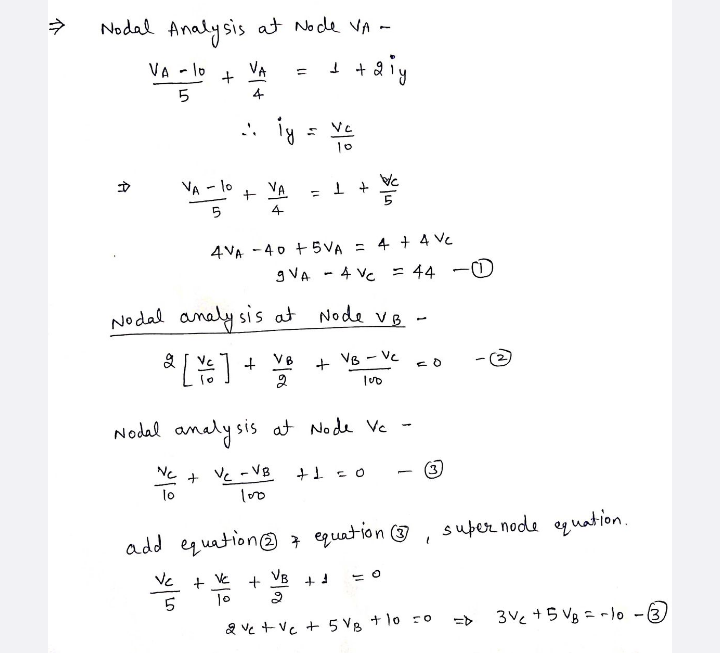 ⇒ Nodal Analysis at Node VA -
(VA - 10)/5 + VA/4 = 1 + 2iy
∴ iy = Vc/10
⇒ (VA - 10)/5 + VA/4 = 1 + Vc/5
4VA - 40 + 5VA = 4 + 4Vc
9VA - 4Vc = 44 - ①
Nodal analysis at Node VB -
2[Vc/10] + VB/2 + (VB - Vc)/100 = 0 - ②
Nodal analysis at Node Vc -
Vc/10 + (Vc - VB)/100 + 1 = 0 - ③
add equation ② & equation ③, supernode equation.
Vc/5 + Vc/10 + VB/2 + 1 = 0
2Vc + Vc + 5VB + 10 = 0 ⇒ 3Vc + 5VB = -10 - ③